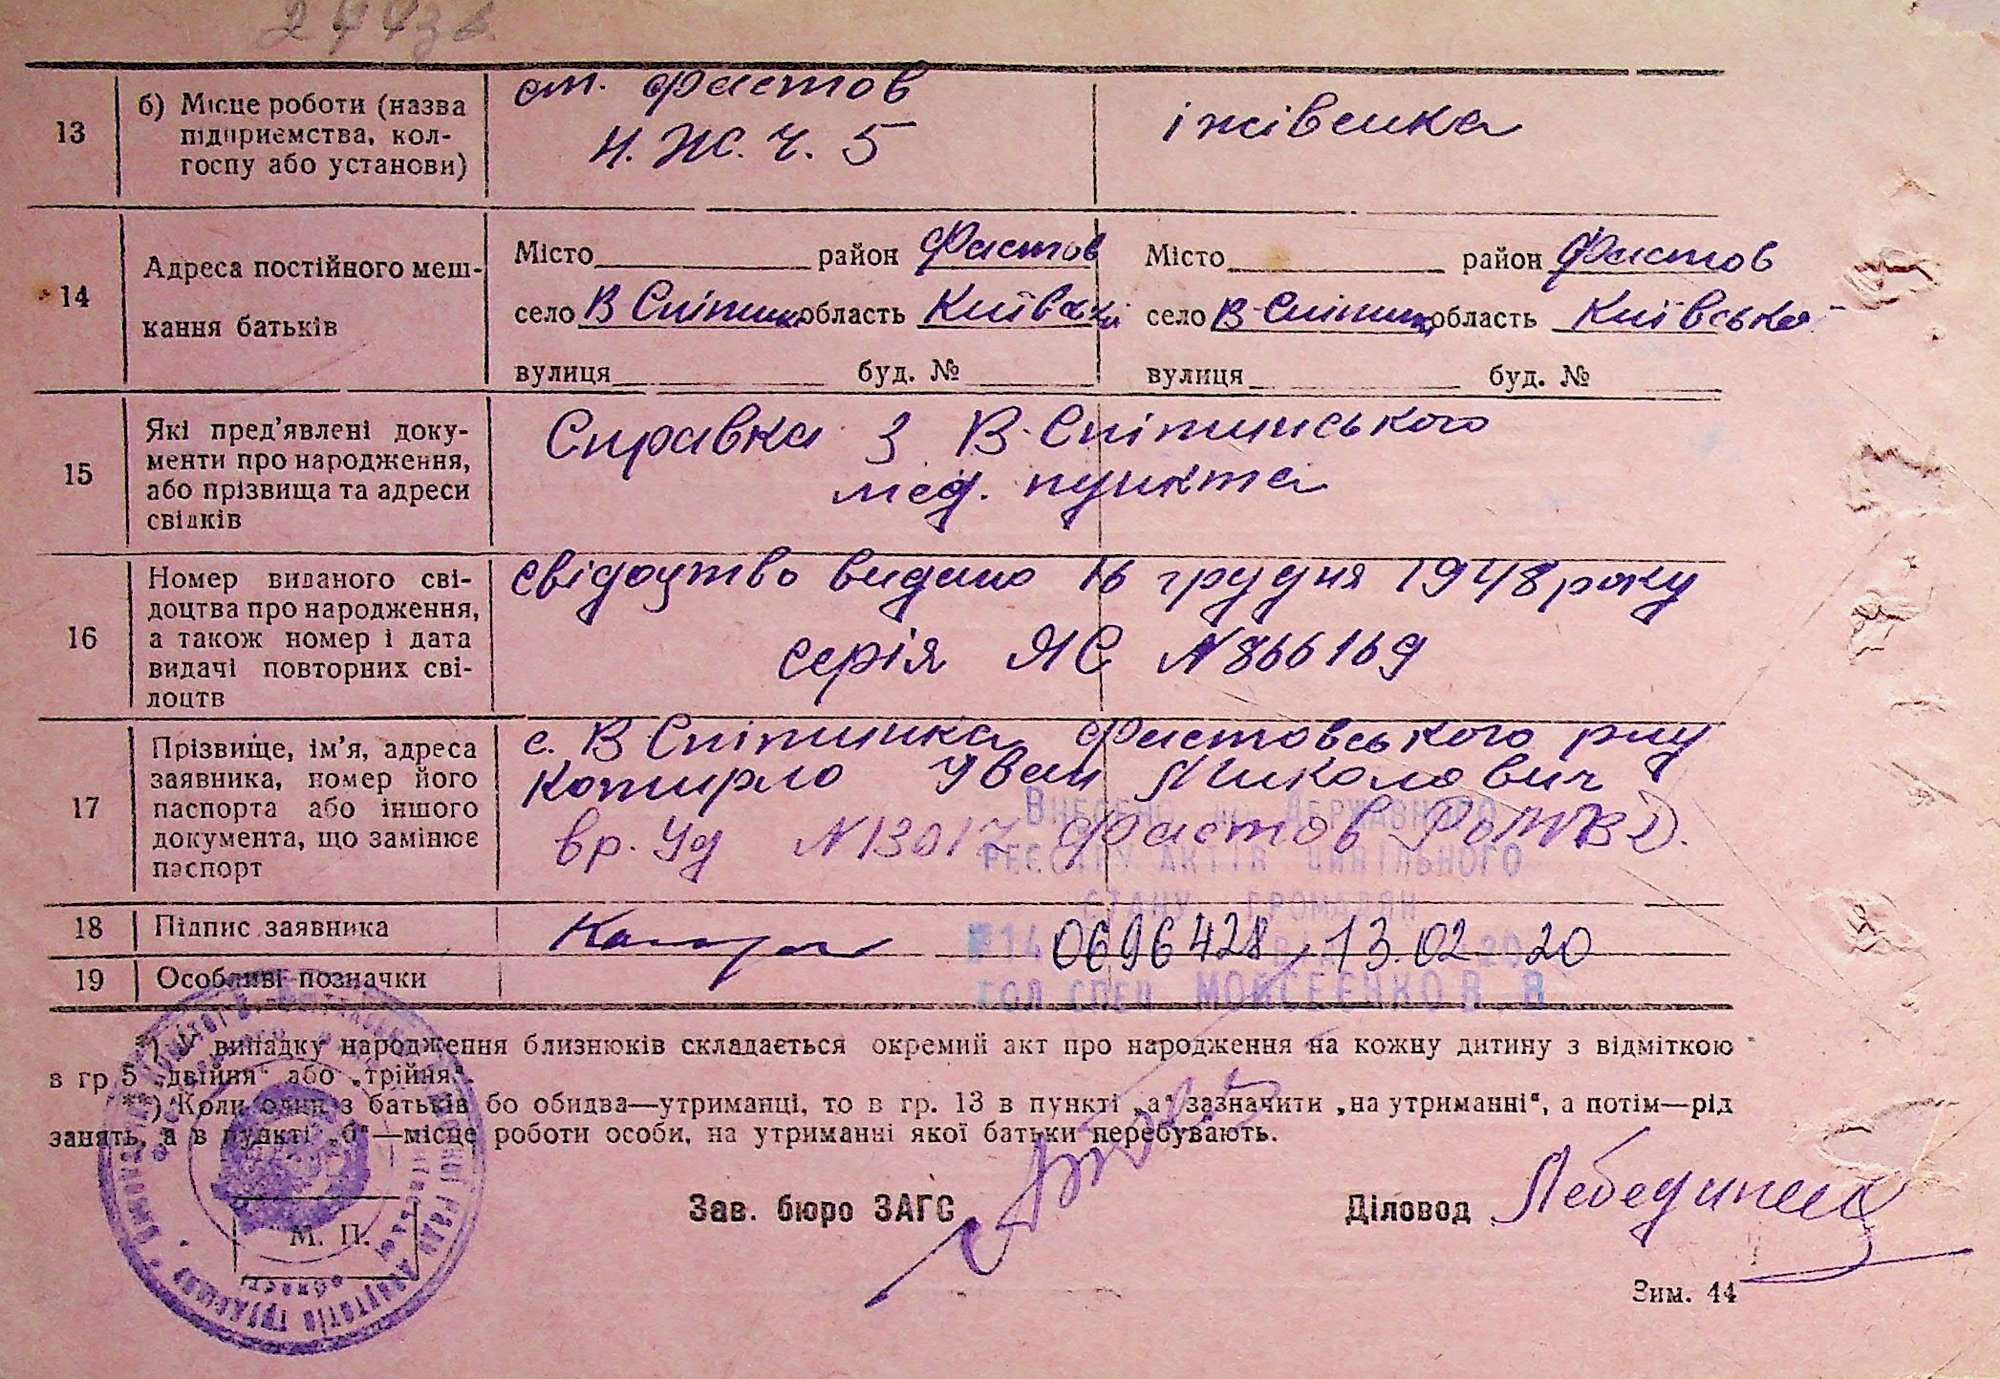 13 б) Місце роботи (назва підприємства, колгоспу або установи)
ст. Фастов
Н.Ж.Ч. 5
іжівенка
14 Адреса постійного мешкання батьків
Місто район Фастов
село В Снітинка область Київські
вулиця буд. №
Місто район Фастов
село В-Снітинка область Київська
вулиця буд. №
15 Які пред'явлені документи про народження, або прізвища та адреси свідків
Справка з В-Снітинського
мед. пункта
16 Номер виданого свідоцтва про народження, а також номер і дата видачі повторних свідоцтв
свідоцтво видано 16 грудня 1948 року
серія ЯС N 866169
17 Прізвище, ім'я, адреса заявника, номер його паспорта або іншого документа, що замінює паспорт
с. В Снітинка Фастовського р-ну
Котирло Иван Миколович
вр. уд N 13017 Фастов РОМВД.
Внесено до Державного
реєстру актів цивільного
стану громадян
0696428, 13.02 2020
гол спец Мойсеєнко В. В
18 Підпис заявника
19 Особливі позначки
*) У випадку народження близнюків складається окремий акт про народження на кожну дитину з відміткою
в гр. 5 „двійня“ або „трійня“.
**) Коли один з батьків бо обидва—утриманці, то в гр. 13 в пункті „а“ зазначити „на утриманні“, а потім—рід
занять, а в пункті „б“—місце роботи особи, на утриманні якої батьки перебувають.
М. П.
Зав. бюро ЗАГС
Діловод Лебединець
Зим. 44